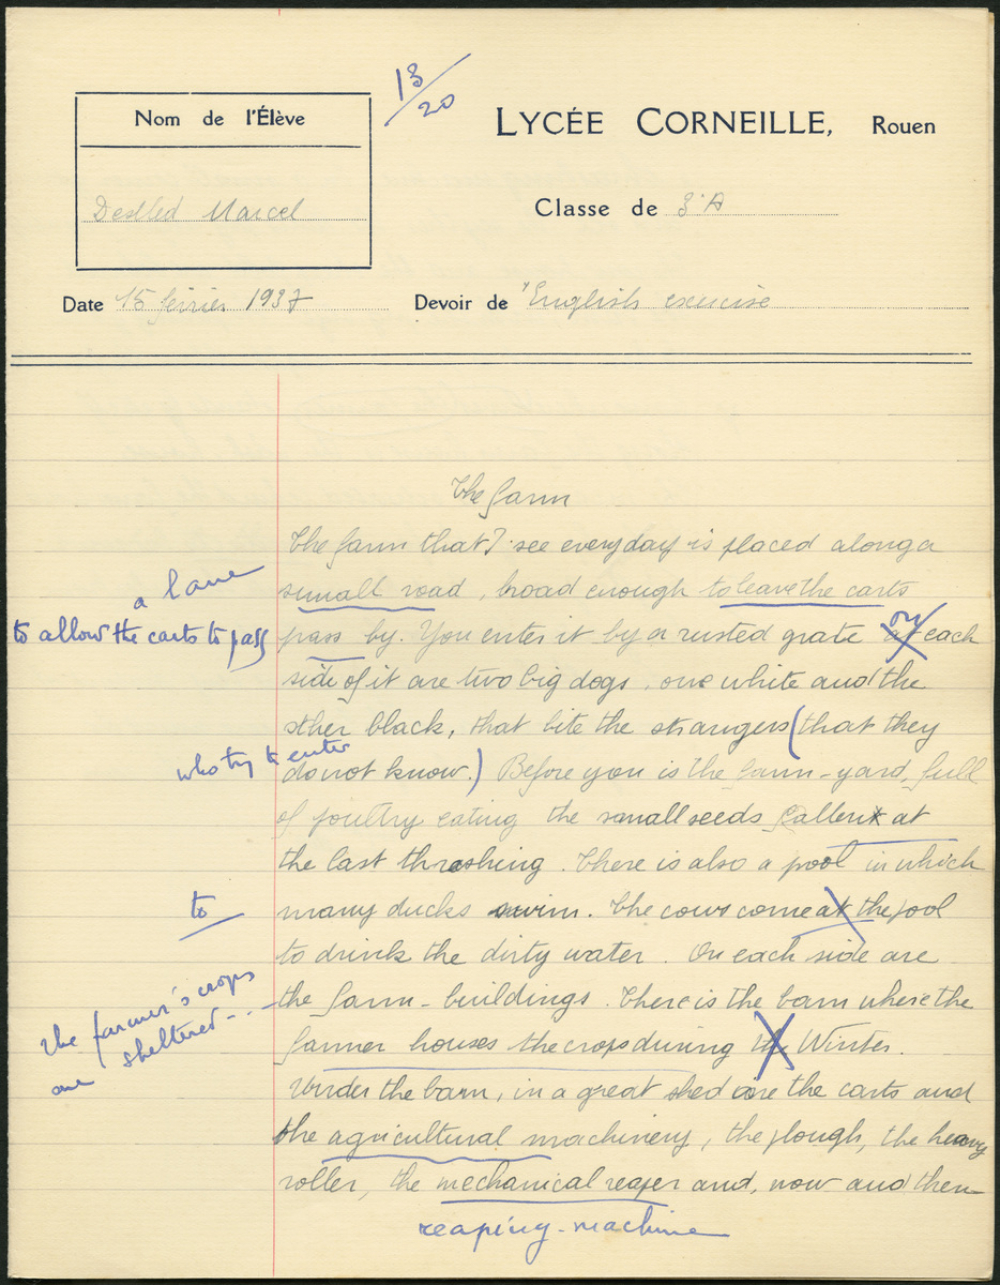 13/20
Nom de l'Élève
LYCÉE CORNEILLE, Rouen
Marcel
Classe de 3e A
Date 15 février 1937
Devoir de "English exercise
The farm
The farm that I see everyday is placed along a
a lane
small road, broad enough to leave the carts
to allow the carts to pass
pass by. You enter it by a rusted grate at on each
side of it are two big dogs, one white and the
other black, that bite the strangers (that they
who try to enter
do not know.) Before you is the farm-yard, full
of poultry eating the small seeds fallen at
the last thrashing. There is also a pool in which
to
many ducks swim. The cows come at the pool
to drink the dirty water. On each side are
the farm-buildings. There is the barn where the
the farmer's crops
are sheltered...
farmer houses the crops during the Winter.
Under the barn, in a great shed are the carts and
the agricultural machinery, the plough, the heavy
roller, the mechanical reaper and, now and then
reaping-machine